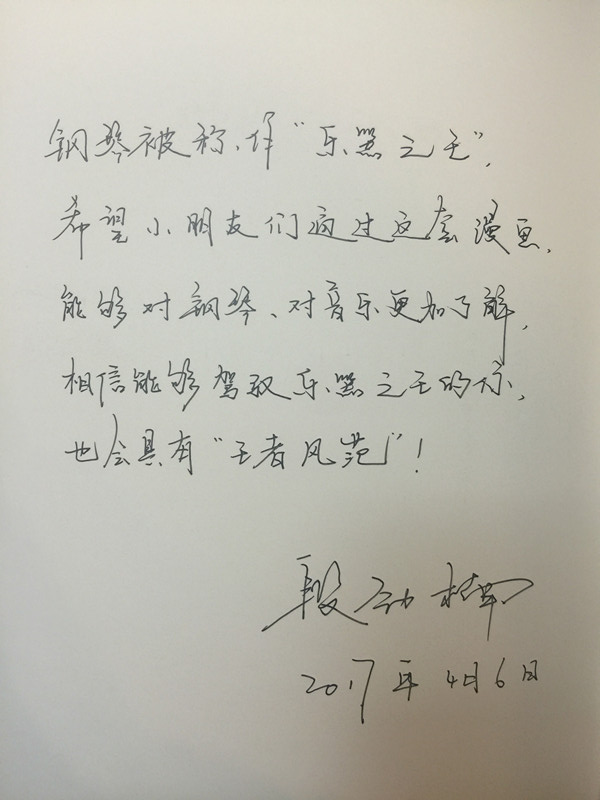 钢琴被称作“乐器之王”，
希望小朋友们通过这套漫画，
能够对钢琴、对音乐更加了解，
相信能够驾驭乐器之王的你，
也会具有“王者风范”！
段劲楠
2017年4月6日